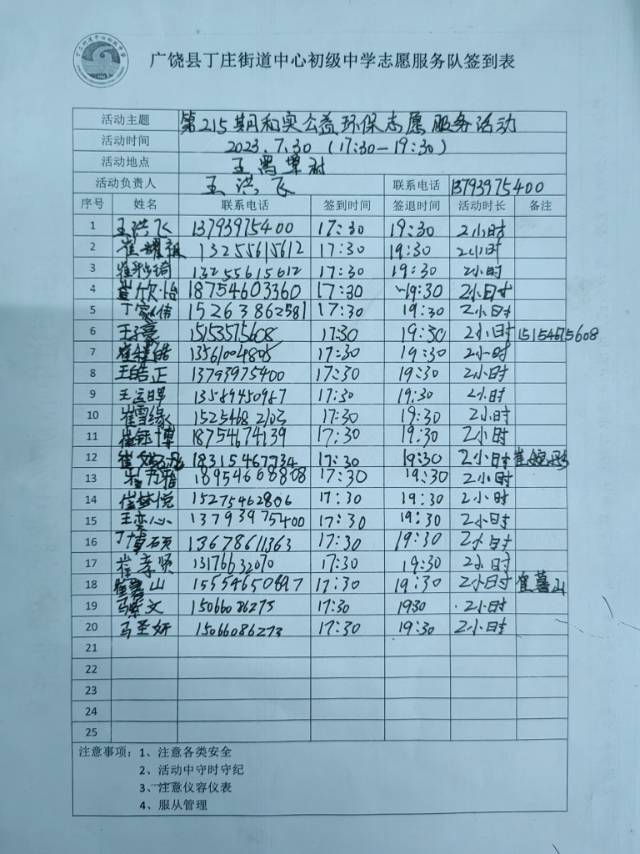 广饶县丁庄街道中心初级中学志愿服务队签到表
活动主题 第215期和实公益环保志愿服务活动
活动时间 2023.7.30 (17:30-19:30)
活动地点 王 村
活动负责人 王洪飞 联系电话 13793975400
序号 姓名 联系电话 签到时间 签退时间 活动时长 备注
1 王洪飞 13793975400 17:30 19:30 2小时
2 崔耀祖 13255615612 17:30 19:30 2小时
3 崔 琦 13255615612 17:30 19:30 2小时
4 崔欣怡 18754603360 17:30 19:30 2小时
5 丁家信 15263862581 17:30 19:30 2小时
6 王子豪 15153575608 17:30 19:30 2小时 15154675608
7 崔 皓 13561004805 17:30 19:30 2小时
8 王皓正 13793975400 17:30 19:30 2小时
9 王 13589450987 17:30 19:30 2小时
10 崔雪缘 17:30 19:30 2小时
11 崔钰博 18754674139 17:30 19:30 2小时
12 崔 18315467734 17:30 19:30 2小时 崔
13 崔 18954668808 17:30 19:30 2小时
14 崔梦悦 15275462806 17:30 19:30 2小时
15 王奕心 13793975400 17:30 19:30 2小时
16 丁 硕 13678611363 17:30 19:30 2小时
17 崔孝贤 13176632070 17:30 19:30 2小时
18 崔 山 15554650697 17:30 19:30 2小时 崔 山
19 马 文 15066086273 17:30 1930 2小时
20 马圣妍 15066086273 17:30 19:30 2小时
21
22
23
24
25
注意事项：1、注意各类安全
2、活动中守时守纪
3、注意仪容仪表
4、服从管理